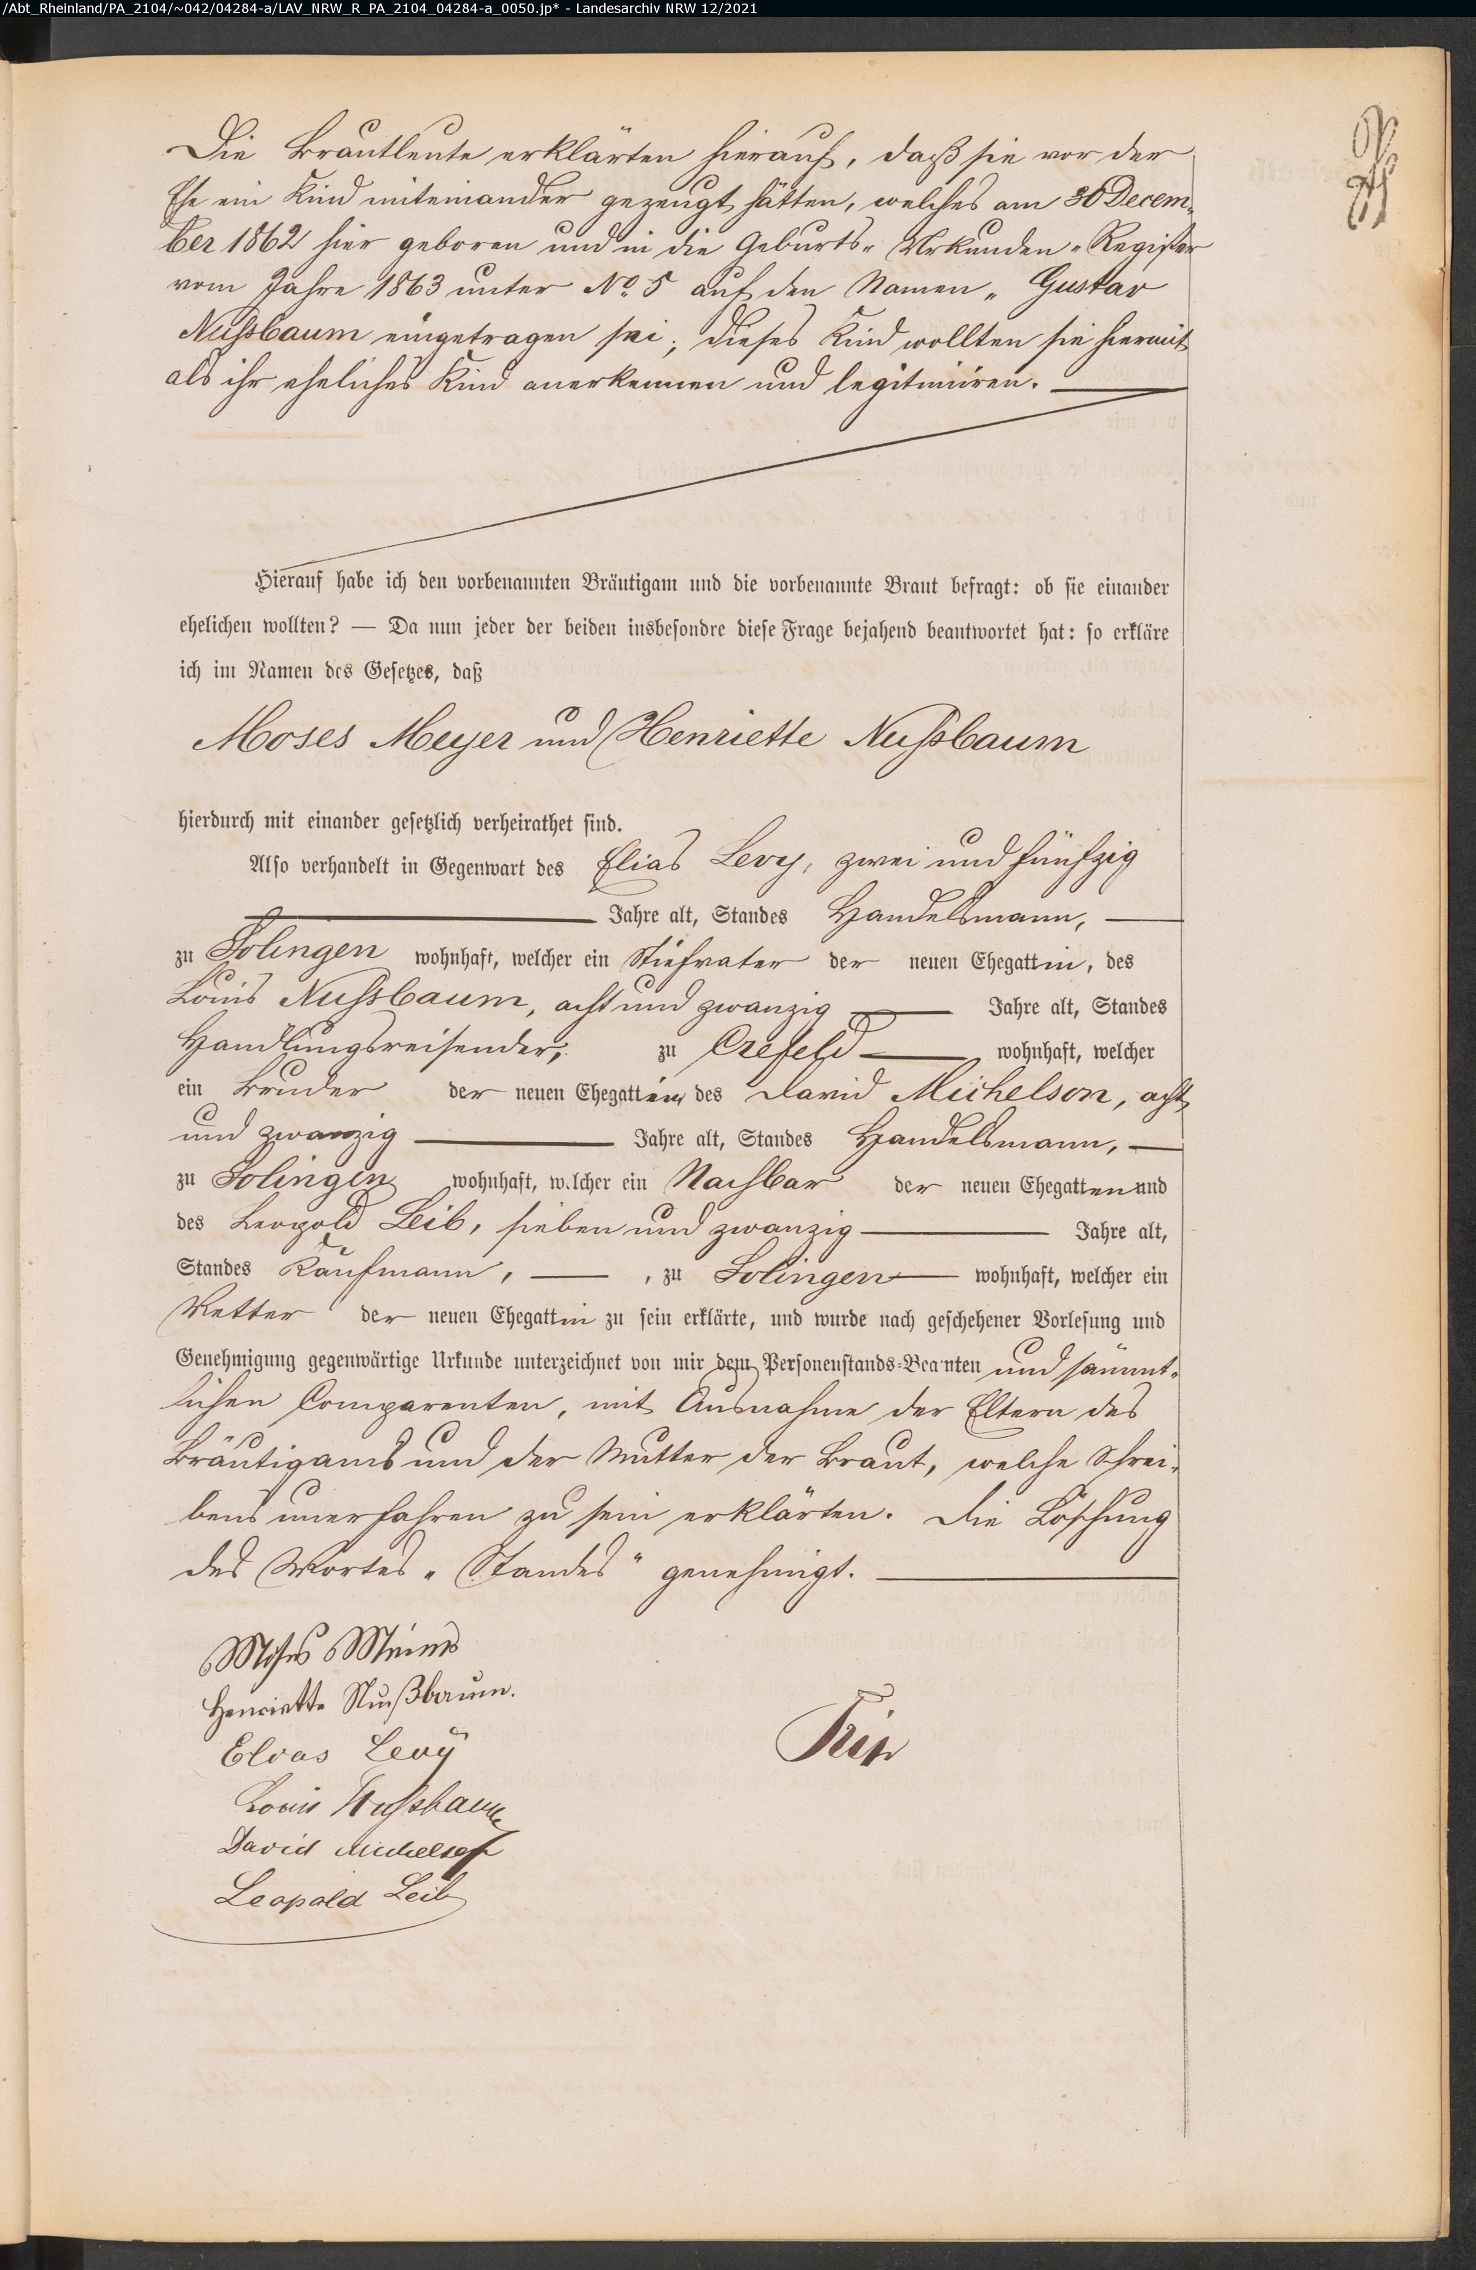 /Abt_Rheinland/PA_2104/~042/04284-a/LAV_NRW_R_PA_2104_04284-a_0050.jp* - Landesarchiv NRW 12/2021
Die Brautleute erklärten hierauf, daß sie vor der
Ehe ein Kind miteinander gezeugt hätten, welches am 30 Decem„
ber 1862 hier geboren und in die Geburts„ Urkunden„ Register
vom Jahre 1863 unter No. 5 auf den Namen „ Gustav
Nussbaum eingetragen sei; dieses Kind wollten sie hiermit
als ihr eheliches Kind anerkennen und legitimiren.
Hierauf habe ich den vorbenannten Bräutigam und die vorbenannte Braut befragt: ob sie einander
ehelichen wollten? — Da nun jeder der beiden insbesondre diese Frage bejahend beantwortet hat: so erkläre
ich im Namen des Gesetzes, daß
Moses Meyer und Henriette Nussbaum
hierdurch mit einander gesetzlich verheirathet sind.
Also verhandelt in Gegenwart des Elias Levy, zwei und fünfzig
Jahre alt, Standes Handelsmann,
zu Solingen wohnhaft, welcher ein Stiefvater der neuen Ehegattin, des
Louis Nussbaum, acht und zwanzig Jahre alt, Standes
Handlungsreisender, zu Crefeld wohnhaft, welcher
ein Bruder der neuen Ehegattin, des David Michelson, acht
und zwanzig Jahre alt, Standes Handelsmann,
zu Solingen wohnhaft, welcher ein Nachbar der neuen Ehegatten und
des Leopold Leib, sieben und zwanzig Jahre alt,
Standes Kaufmann, , zu Solingen wohnhaft, welcher ein
Vetter der neuen Ehegattin zu sein erklärte, und wurde nach geschehener Vorlesung und
Genehmigung gegenwärtige Urkunde unterzeichnet von mir dem Personenstands-Beamten und sämmt„
lichen Comparenten, mit Ausnahme der Eltern des
Bräutigams und der Mutter der Braut, welche Schrei„
bens unerfahren zu sein erklärten. Die Löschung
des Wortes „ Standes " genehmigt.
Moses
Henriette Nußbaum.
Elias Levÿ
Louis Nussbaum
David Michelson
Leopold Leib